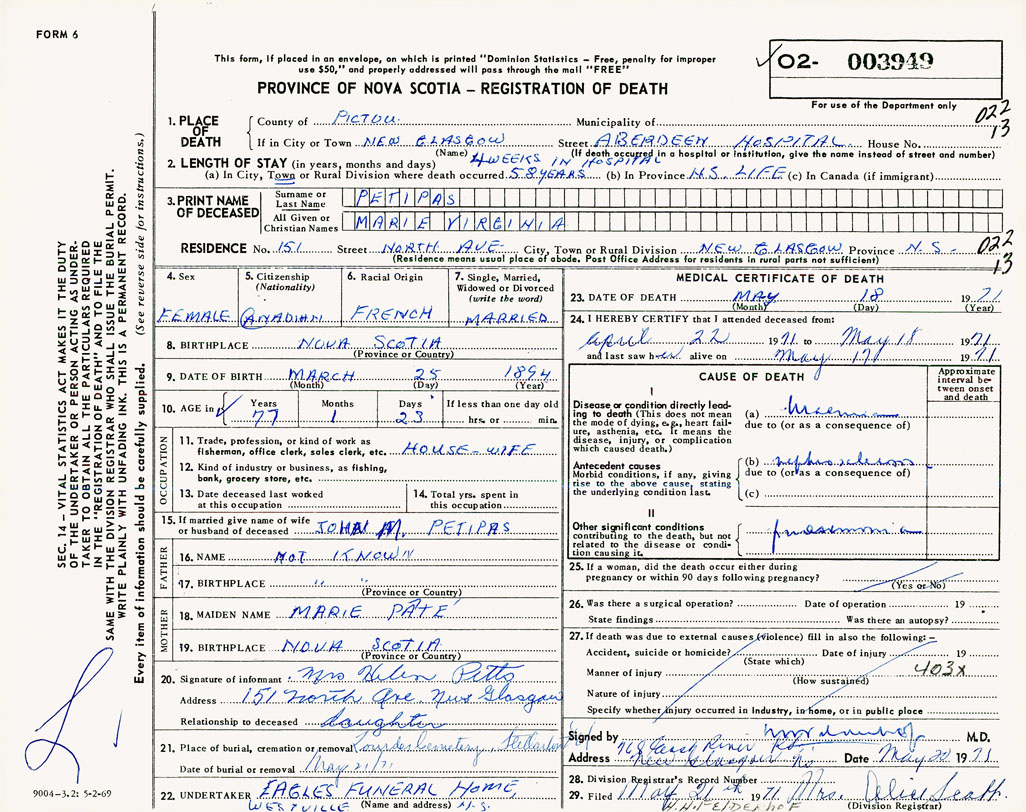 FORM 6
This form, if placed in an envelope, on which is printed "Dominion Statistics – Free, penalty for improper
use $50," and properly addressed will pass through the mail "FREE"
PROVINCE OF NOVA SCOTIA – REGISTRATION OF DEATH
02- 003949
For use of the Department only
022
13
1. PLACE OF DEATH
County of PICTOU Municipality of
If in City or Town NEW GLASGOW Street ABERDEEN HOSPITAL House No.
(Name) (If death occurred in a hospital or institution, give the name instead of street and number)
2. LENGTH OF STAY (in years, months and days) 4 WEEKS IN HOSPITAL
(a) In City, Town or Rural Division where death occurred 58 YEARS (b) In Province N.S. LIFE (c) In Canada (if immigrant)
3. PRINT NAME OF DECEASED
Surname or Last Name PETIPAS
All Given or Christian Names MARIE VIRGINIA
RESIDENCE No. 151 Street NORTH AVE. City, Town or Rural Division NEW GLASGOW Province N.S.
(Residence means usual place of abode. Post Office Address for residents in rural parts not sufficient)
022
13
4. Sex
FEMALE
5. Citizenship
(Nationality)
CANADIAN
6. Racial Origin
FRENCH
7. Single, Married,
Widowed or Divorced
(write the word)
MARRIED
8. BIRTHPLACE NOVA SCOTIA
(Province or Country)
9. DATE OF BIRTH MARCH 25 1894
(Month) (Day) (Year)
10. AGE in
Years Months Days If less than one day old
77 1 23 hrs. or min.
OCCUPATION
11. Trade, profession, or kind of work as
fisherman, office clerk, sales clerk, etc. HOUSE-WIFE
12. Kind of industry or business, as fishing,
bank, grocery store, etc.
13. Date deceased last worked
at this occupation
14. Total yrs. spent in
this occupation
15. If married give name of wife
or husband of deceased JOHN M. PETIPAS
FATHER
16. NAME NOT KNOWN
17. BIRTHPLACE " "
(Province or Country)
MOTHER
18. MAIDEN NAME MARIE PÂTÉ
19. BIRTHPLACE NOVA SCOTIA
(Province or Country)
20. Signature of informant Mrs Helen Pitts
Address 151 North Ave, New Glasgow
Relationship to deceased daughter
21. Place of burial, cremation or removal Lourdes Cemetery, Stellarton
Date of burial or removal May 21/71
22. UNDERTAKER EAGLES FUNERAL HOME,
WESTVILLE N.S.
(Name and address)
MEDICAL CERTIFICATE OF DEATH
23. DATE OF DEATH MAY 18 1971
(Month) (Day) (Year)
24. I HEREBY CERTIFY that I attended deceased from:
April 22 1971 to May 18 1971
and last saw her alive on May 17 1971
CAUSE OF DEATH
Approximate
interval be-
tween onset
and death
I
Disease or condition directly lead-
ing to death (This does not mean
the mode of dying, e.g., heart fail-
ure, asthenia, etc. It means the
disease, injury, or complication
which caused death.)
(a) Uraemia
due to (or as a consequence of)
Antecedent causes
Morbid conditions, if any, giving
rise to the above cause, stating
the underlying condition last.
(b) nephrosclerosis
due to (or as a consequence of)
(c)
II
Other significant conditions
contributing to the death, but not
related to the disease or condi-
tion causing it.
pneumonia
25. If a woman, did the death occur either during
pregnancy or within 90 days following pregnancy?
(Yes or No)
26. Was there a surgical operation? Date of operation 19
State findings Was there an autopsy?
27. If death was due to external causes (violence) fill in also the following:–
Accident, suicide or homicide? Date of injury 19
(State which)
Manner of injury 403X
(How sustained)
Nature of injury
Specify whether injury occurred in industry, in home, or in public place
Signed by M.D.
Address 768 East River Rd. New Glasgow NS Date May 20 1971
28. Division Registrar's Record Number
29. Filed May 21st 1971 Mrs.
(Division Registrar)
SEC. 14 – VITAL STATISTICS ACT MAKES IT THE DUTY
OF THE UNDERTAKER OR PERSON ACTING AS UNDER-
TAKER TO OBTAIN ALL THE PARTICULARS REQUIRED
IN THE "REGISTRATION OF DEATH" AND TO FILE THE
SAME WITH THE DIVISION REGISTRAR WHO SHALL ISSUE THE BURIAL PERMIT.
WRITE PLAINLY WITH UNFADING INK. THIS IS A PERMANENT RECORD.
Every item of information should be carefully supplied. (See reverse side for instructions.)
9004-3.2: 5-2-69